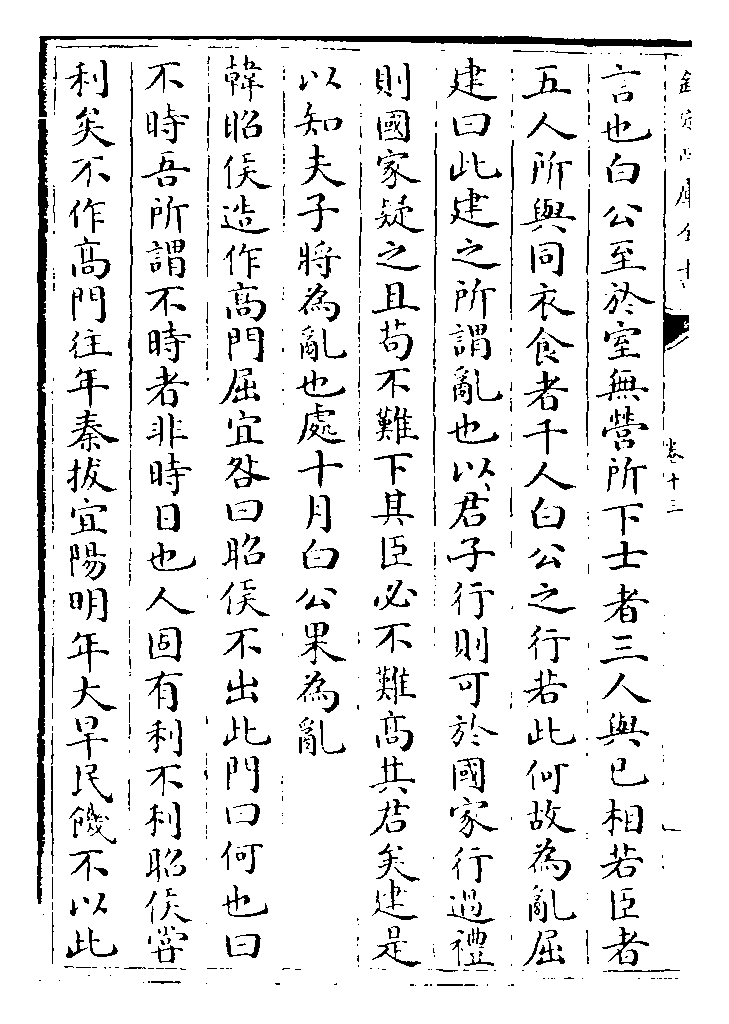 欽定四庫全書
卷十三
言也白公至於室無營所下士者三人與已相若臣者
五人所與同衣食者千人白公之行若此何故為亂屈
建曰此建之所謂亂也以君子行則可於國家行過禮
則國家疑之且茍不難下其臣必不難髙其君矣建是
以知夫子將為亂也處十月白公果為亂
韓昭侯造作髙門屈宜咎曰昭侯不出此門曰何也曰
不時吾所謂不時者非時日也人固有利不利昭侯嘗
利矣不作髙門往年秦拔宜陽明年大旱民饑不以此